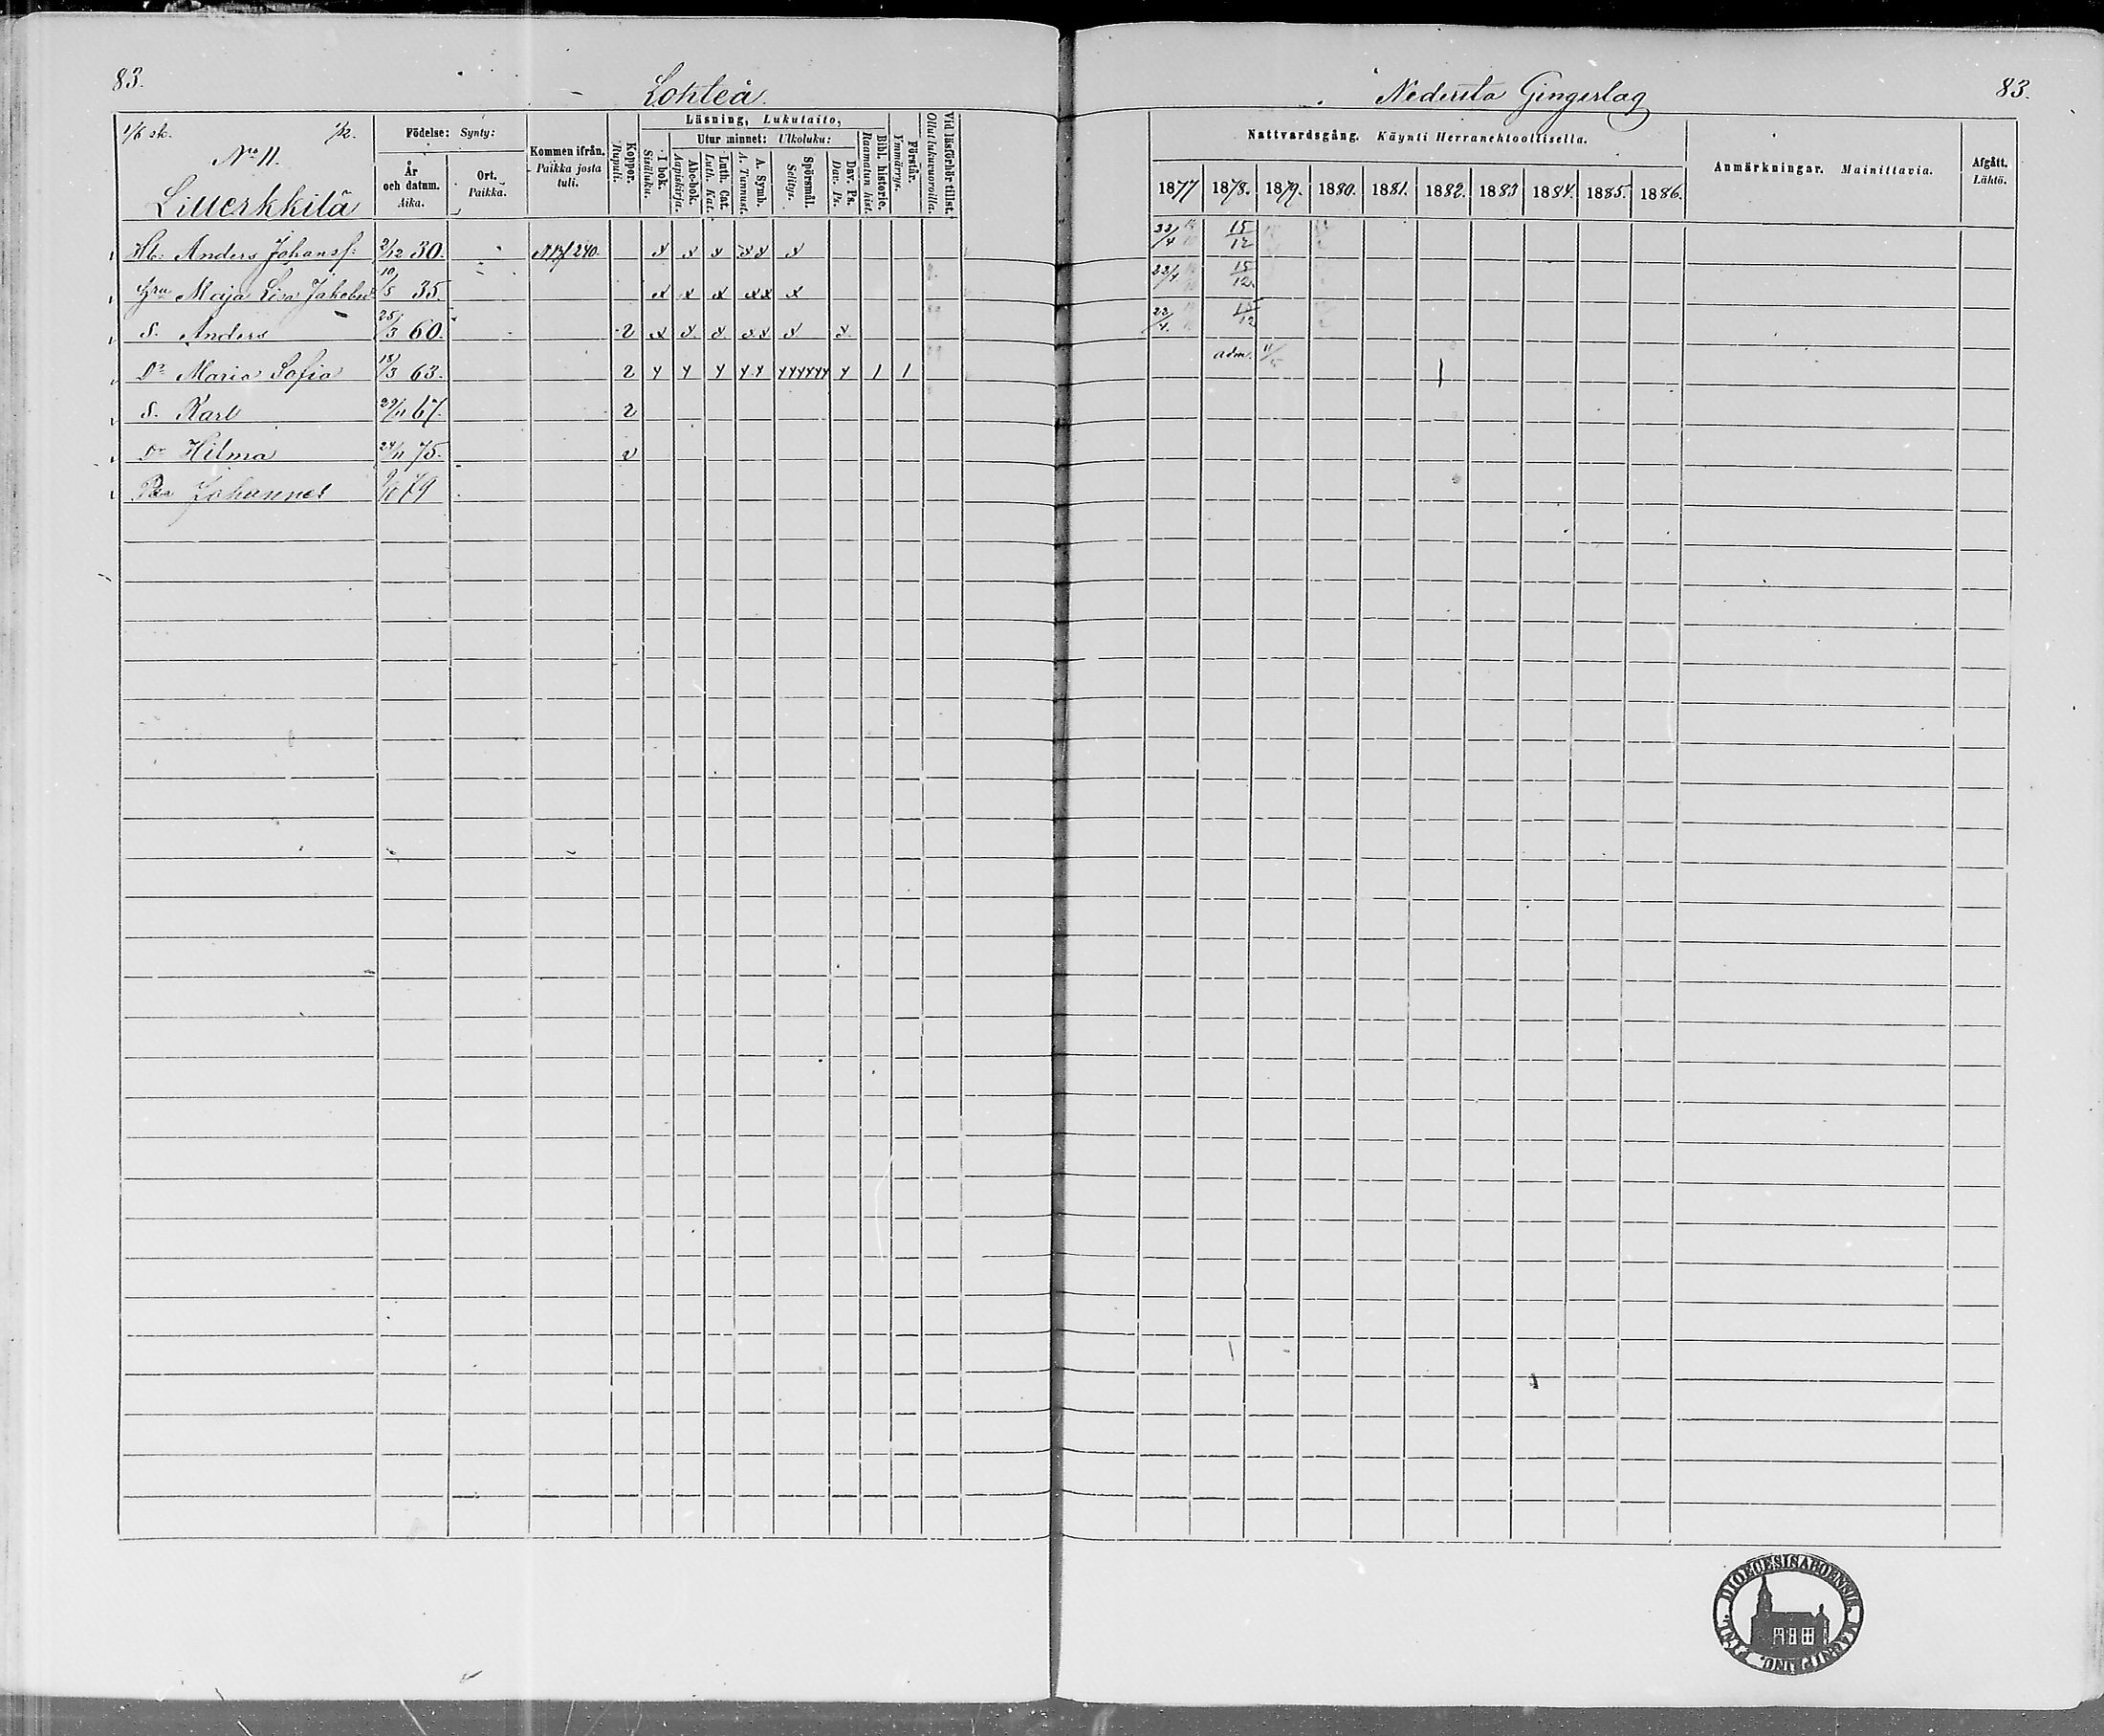 83.
Lohteå.
Nedersta Gingerlag
83.
1/6 sk. 1/12.
No 11.
Litterkkilä
Födelse: Synty:
År och datum. Aika.
Ort. Paikka.
Kommen ifrån. Paikka josta tuli.
Koppor. Rupuli.
Läsning, Lukutaito,
I bok. Sisäluku.
Utur minnet: Ulkoluku:
Abc-bok. Aapiskirja.
Luth. Cat. Luth. Kat.
A. Symb. A. Tunnust.
Spörsmål. Selitys.
Dav. Ps. Dav. Ps.
Bibl. historie. Raamatun hist.
Förstår. Ymmärrys.
Vid läsförhör tillst. Ollut lukuvuoroilla.
Nattvardsgång. Käynti Herranehtoollisella.
1877 1878. 1879. 1880. 1881. 1882. 1883 1884. 1885. 1886.
Anmärkningar. Mainittavia.
Afgått. Lähtö.
Hb: Anders Johansf: 2/12 30. 240. x x x xx x 22/4 15/12
Hru Maja Lisa Jakobsd 10/5 35 x x x xx x 22/4 15/12
S. Anders 25/3 60. 2 x x x xx x x 22/4. 15/12
Dr Maria Sofia 18/3 63. 2 y y y yy yyyyyy y 1 1 adm.
S. Karl 29/11 67. 2
Dr Hilma 24/11 75. v
Johannes 79
FINL. DIOECESIS ABOENSIS